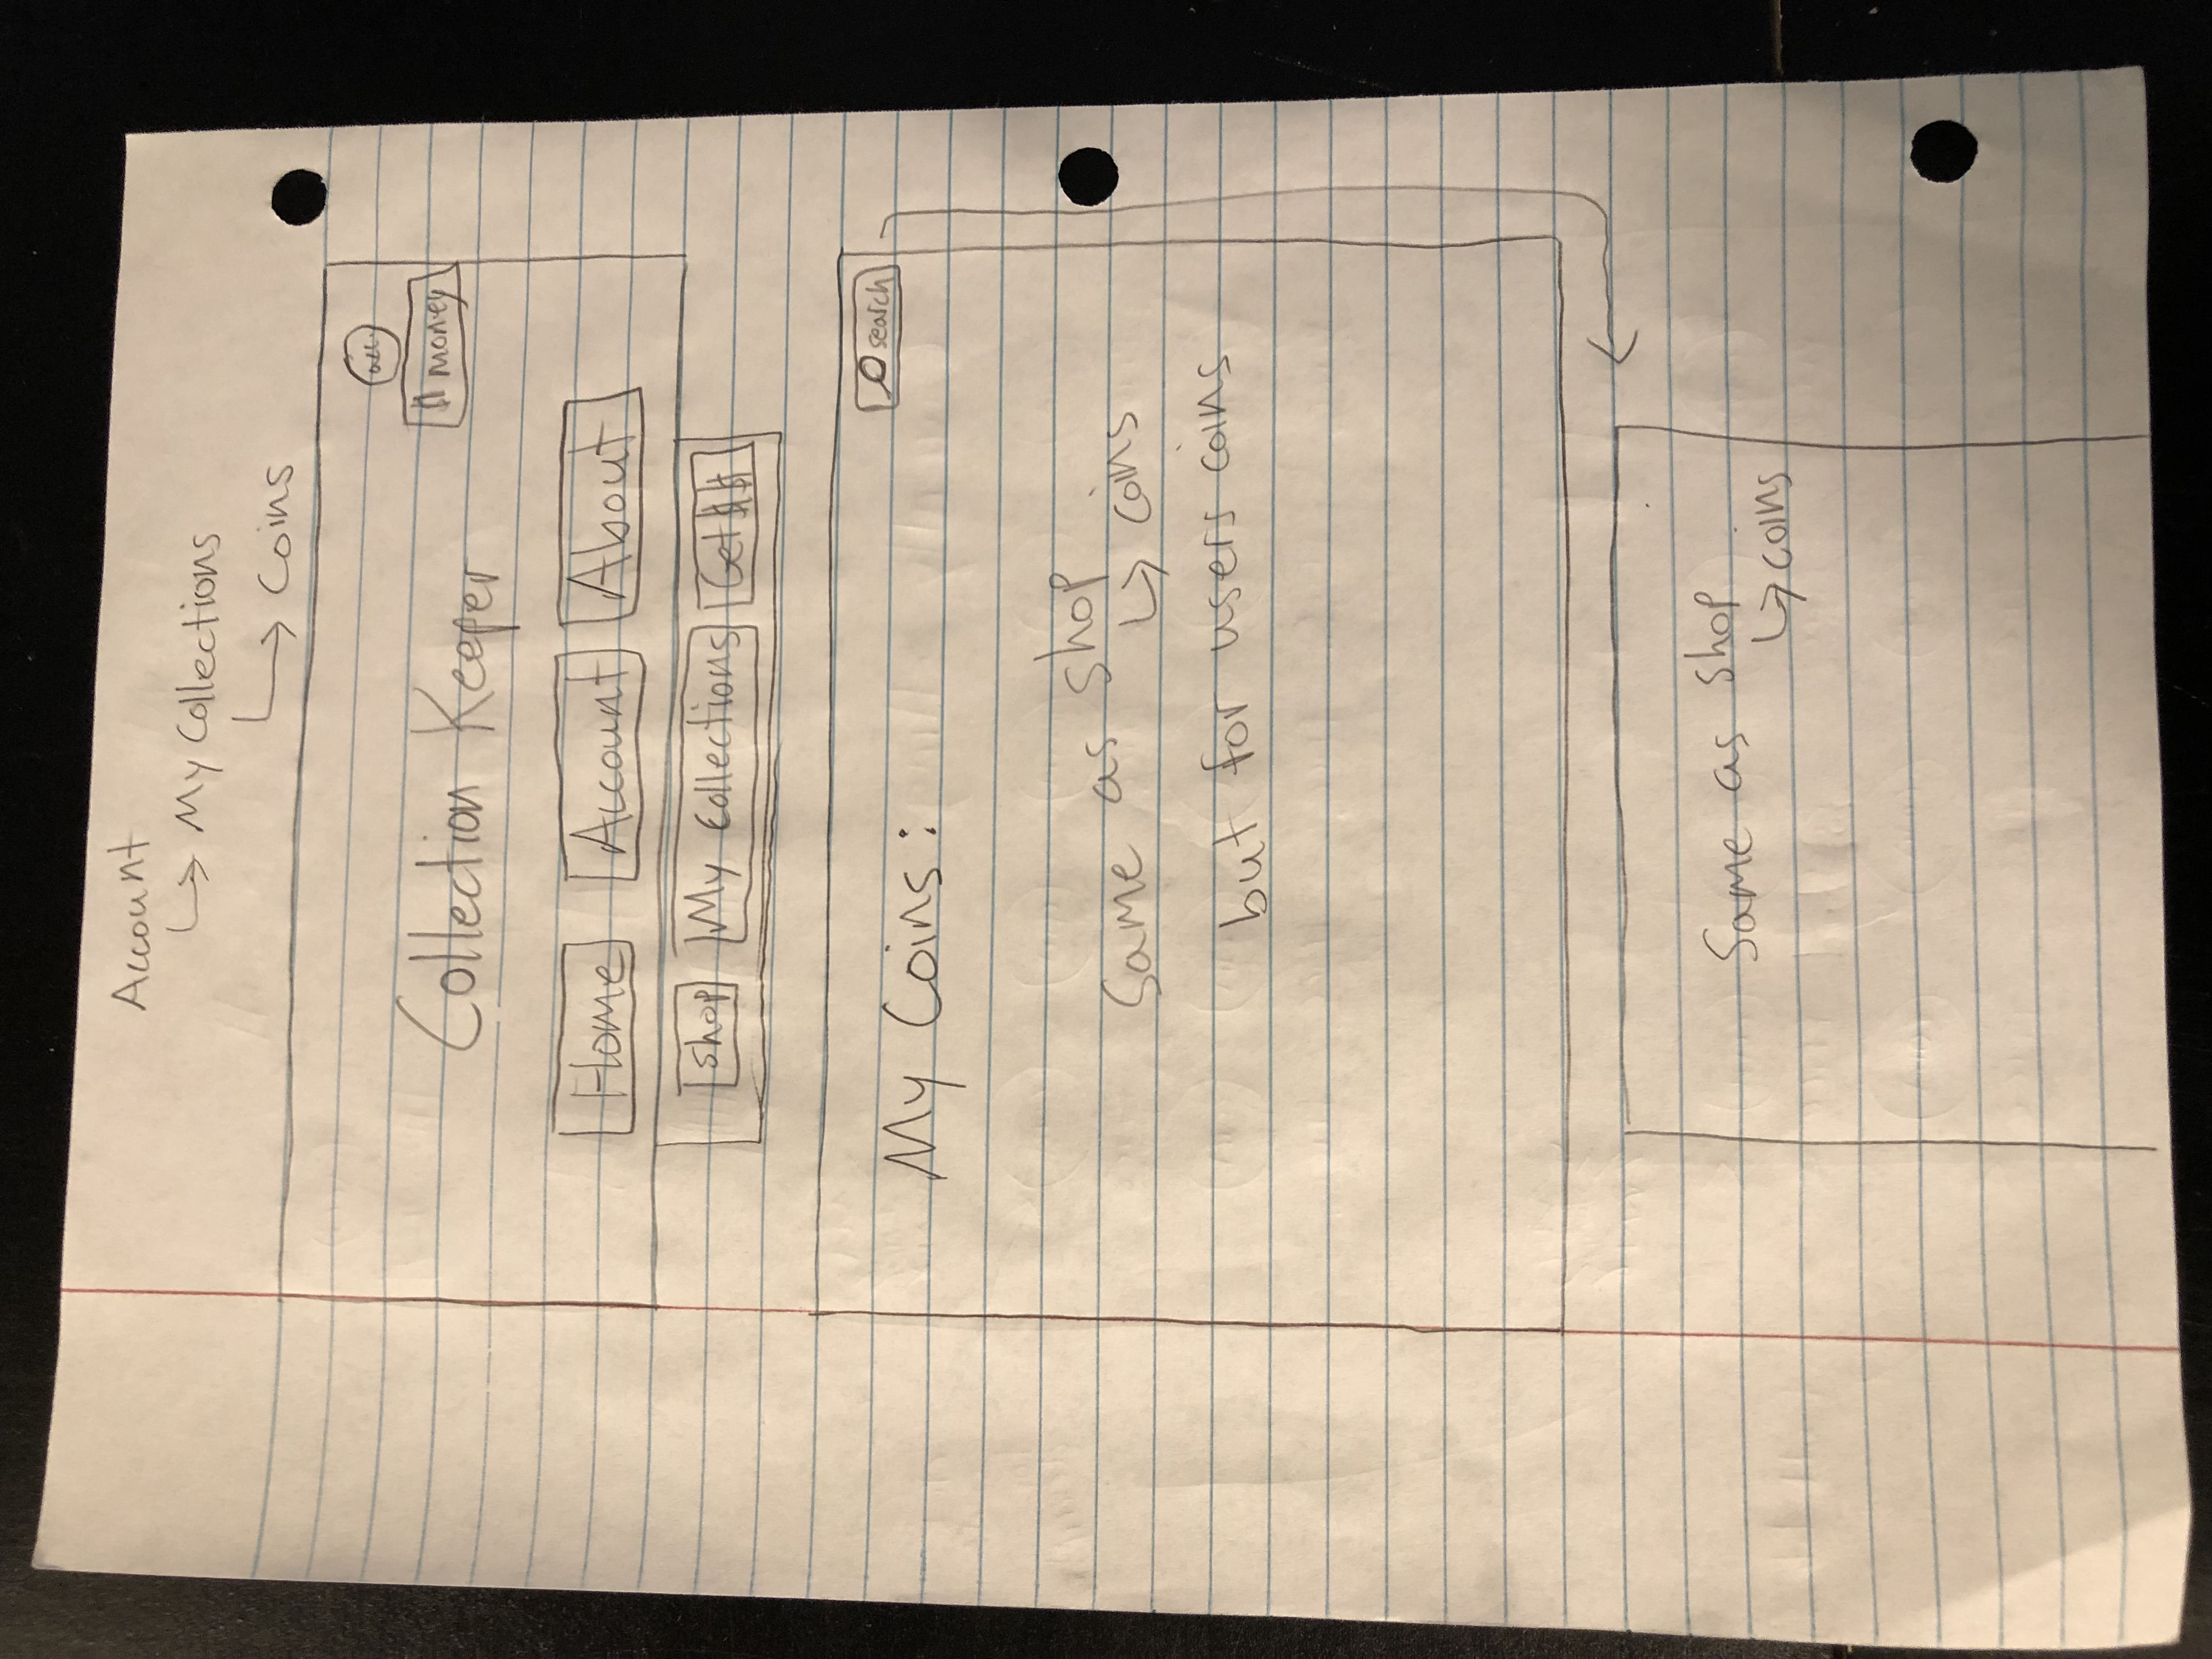 Account
↳ My Collections
↳ Coins
acc.
$ money
Collection Keeper
Home Account About
Shop My Collections Get $$
search
My Coins:
Same as shop
↳ coins
but for users coins
Same as shop
↳ coins